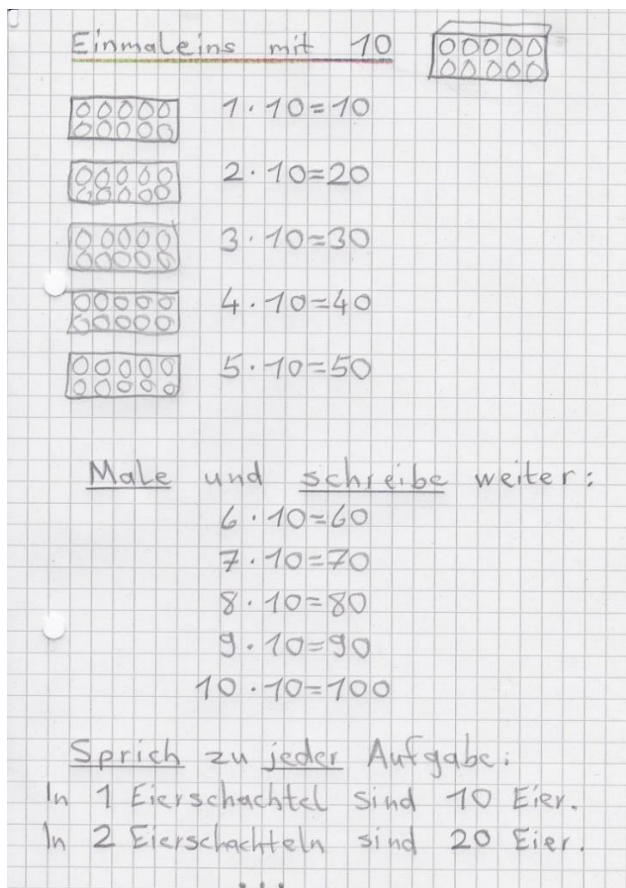 Einmaleins mit 10
1 · 10 = 10
2 · 10 = 20
3 · 10 = 30
4 · 10 = 40
5 · 10 = 50
Male und schreibe weiter:
6 · 10 = 60
7 · 10 = 70
8 · 10 = 80
9 · 10 = 90
10 · 10 = 100
Sprich zu jeder Aufgabe:
In 1 Eierschachtel sind 10 Eier.
In 2 Eierschachteln sind 20 Eier.
...